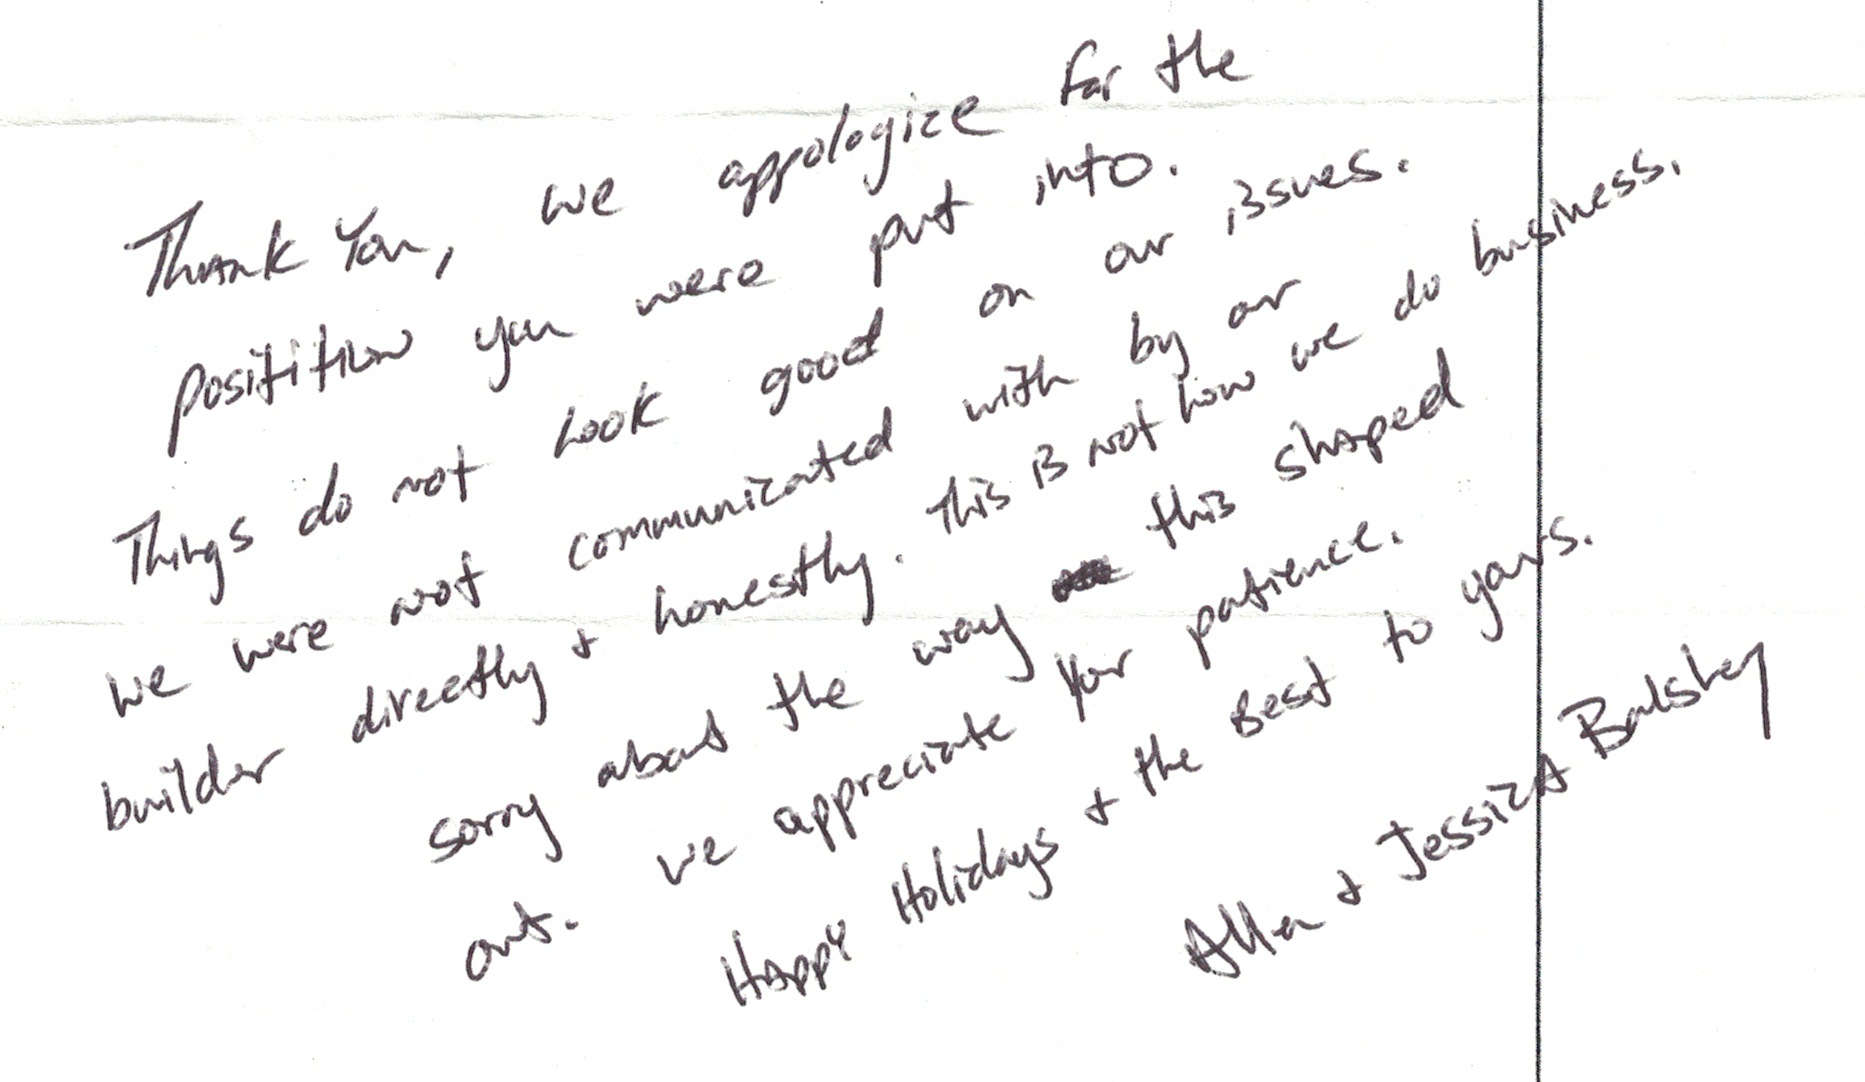 Thank You, we appologize for the
posititiion you were put into.
Things do not look good on our issues.
we were not communicated with by our
builder directly + honestly. This is not how we do business.
sorry about the way this shaped
out. we appreciate your patience.
Happy Holidays + the Best to yours.
Allen + Jessica Balshey